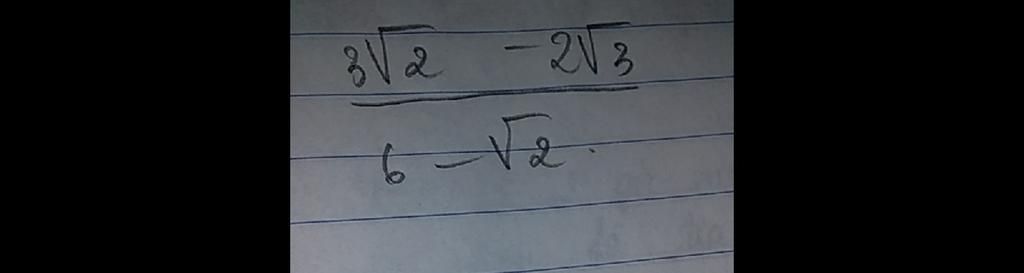 3√2 - 2√3
6 - √2.